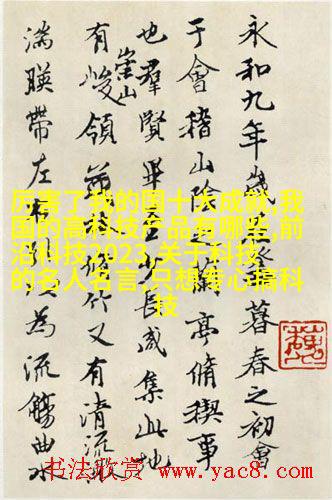 永和九年歲在癸暮春之初會
于會稽山陰之蘭亭脩稧事
也羣賢畢至少長咸集此地
有崇山峻領茂脩竹又有清流激
湍暎帶左右引以為流觴曲水
厉害了我的国十大成就,我
国的高科技产品有哪些,前
沿科技2023,关于科技
的名人名言,只想专心搞科
技
书法欣赏 www.yac8.com